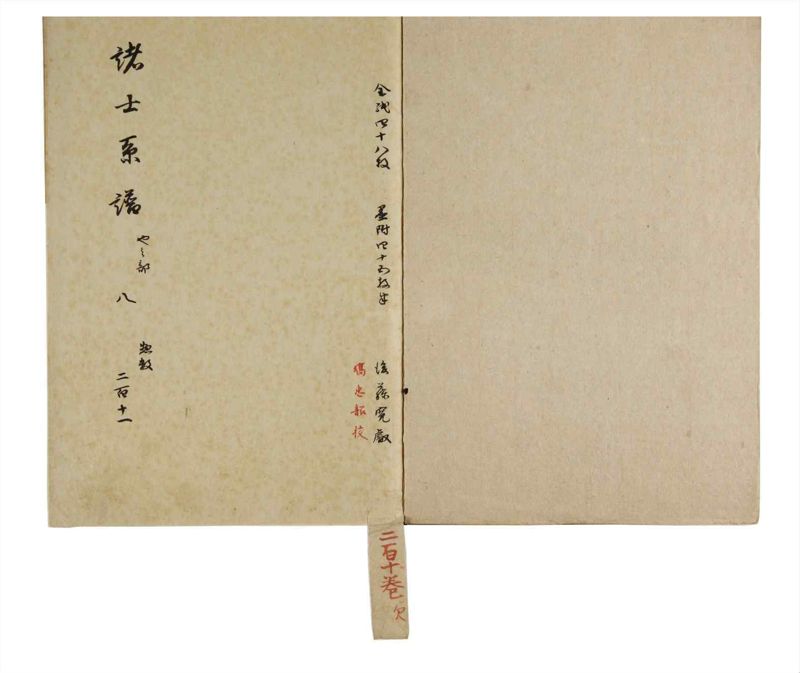 全紙四十八枚　墨附四十五枚半
後藤寛敬
橘忠報校
諸士系譜　やノ部　八　惣数　二百十一
二百十巻欠